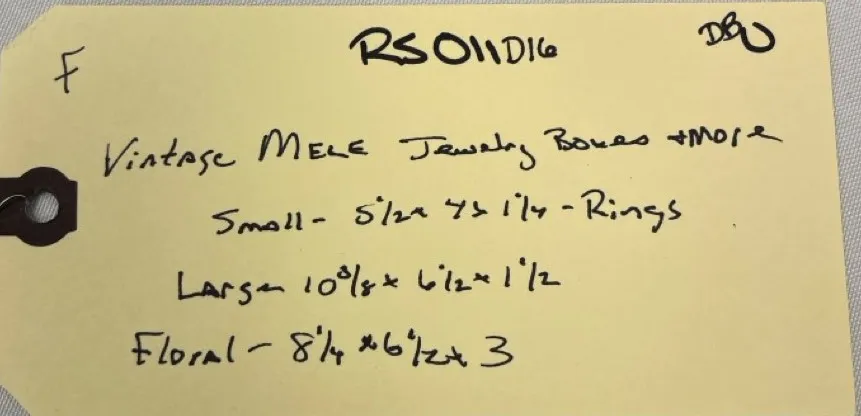 F
RS011D16
DBU
Vintage MELE Jewelry Boxes + More
Small - 5 1/2 x 4 x 1 1/4 - Rings
Large 10 3/8 x 6 1/2 x 1 1/2
Floral - 8 1/4 x 6 1/2 x 3